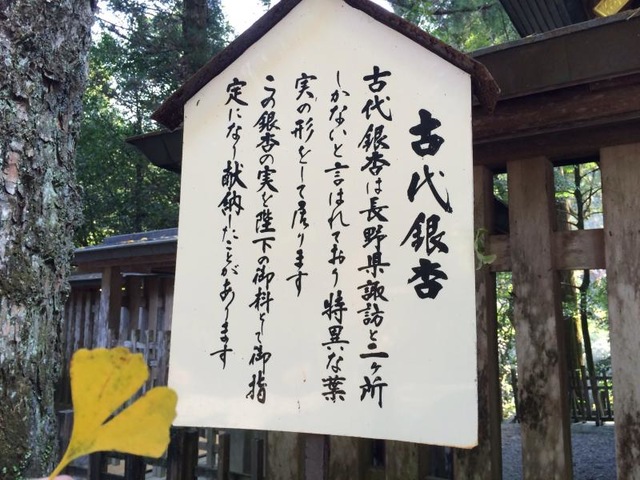 古代銀杏
古代銀杏は長野県諏訪と二ヶ所
しかないと言はれており特異な葉
実の形をして居ります
この銀杏の実を陛下の御料として御指
定になり献納したことがあります